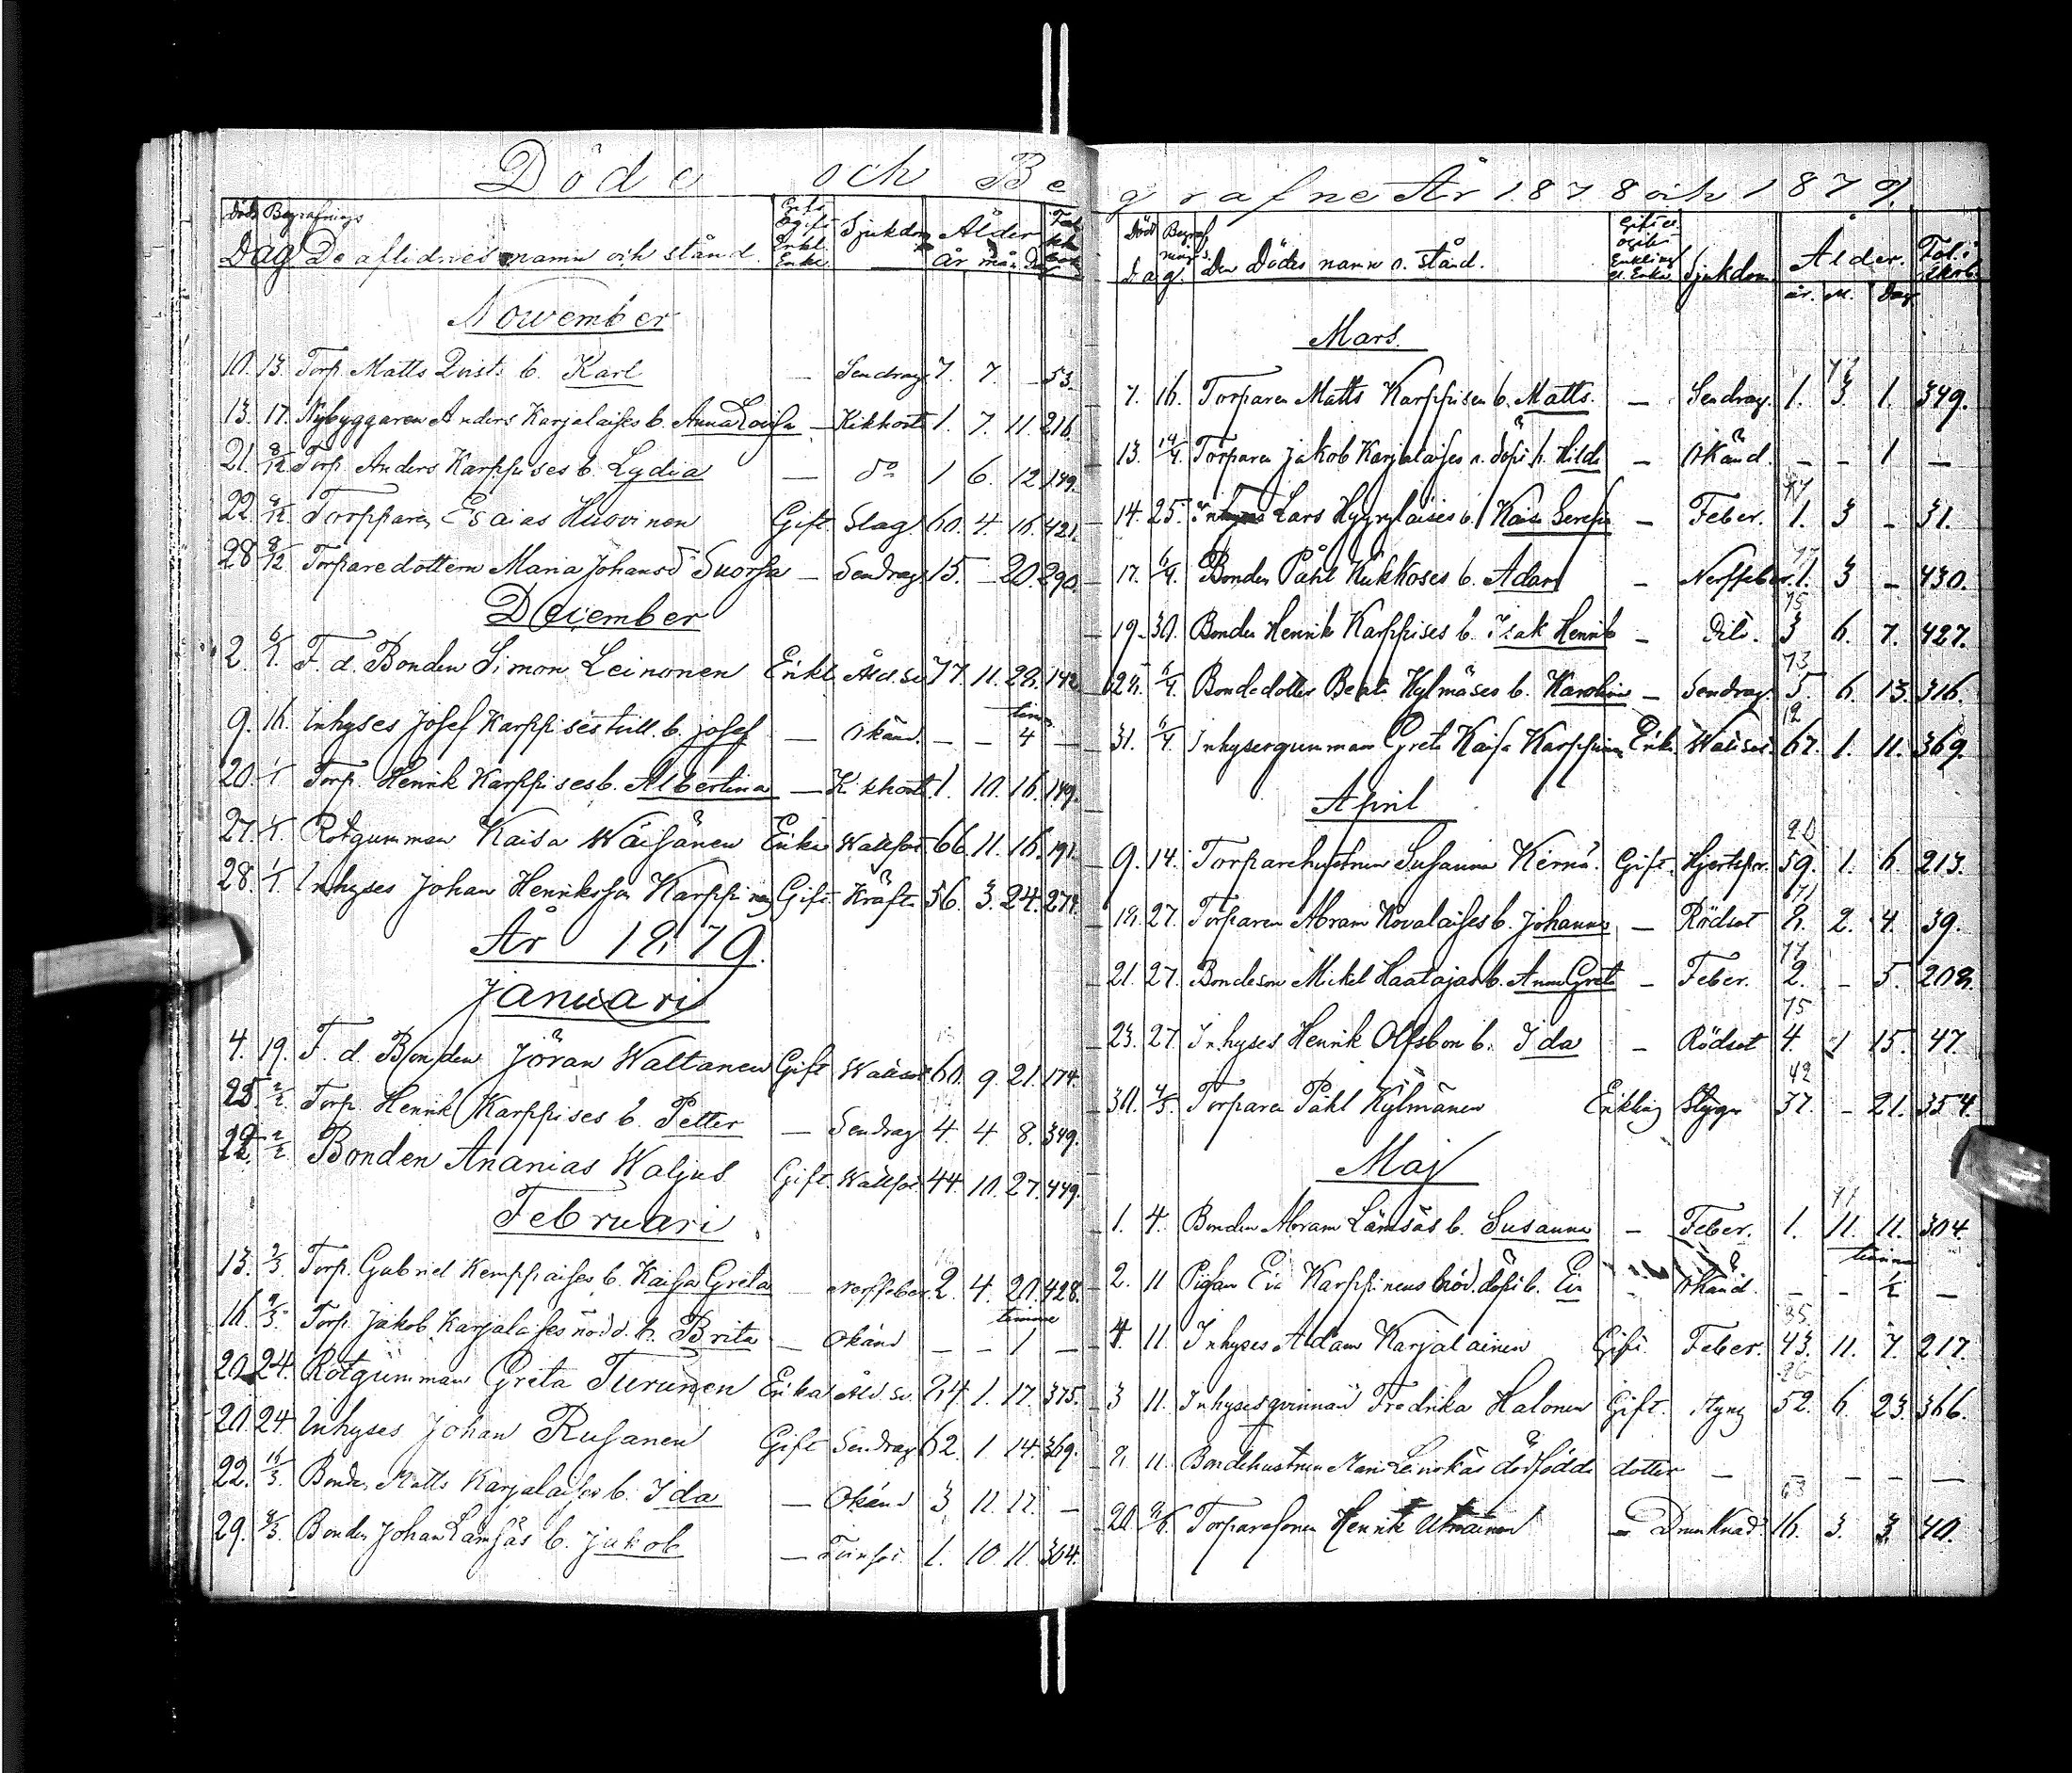 Döde och Be
Död Begrafnings Gift Ogift Enkl. Enka Sjukdom Ålder
Dag De aflidnes namn och stånd. år mån dag
November
10. 13. Torp. Matts Qvists b. Karl — Sendrag 7. 7. — 53.
13. 17. Nybyggaren Anders Karjalaises b. Anna Lovisa — Kikhosta 1. 7. 11. 216.
21. 8/12 Torp. Anders Karppises b. Lydia — do 1 6. 12 149.
22. 8/12 Torpparen Esaias Huovinen Gift. Slag. 60. 4. 16. 421.
28 8/12 Torparedottern Maria Johansd Suorsa — Sendrag 15. — 20. 290.
December
2. 6/1 F. d. Bonden Simon Leinonen Enkl. Åld.sv 77. 11. 28. 142
9. 16. Inhyses Josef Karppises b. Josef — Okänd. — — 4 —
20. 1/1 Torp. Henrik Karppises b. Albertina — Kikhosta 1. 10. 16. 149.
27. 1/1 Rotgumman Kaisa Wäisänen Enka Wattsot 66. 11. 16. 191.
28. 1/1 Inhyses Johan Henriksson Karppinen Gift. Kräfta 56. 3. 24. 274.
År 1879.
Januari
4. 19. F. d. Bonden Jöran Waltanen Gift Wattsot 60. 9. 21. 174.
25. 2/2 Torp. Henrik Karppises b. Petter — Sendrag 4. 4 8. 349.
2/2 Bonden Ananias Waljus Gift. Wattsot 44. 10. 27. 449.
Februari
13. 2/3. Torp. Gabriel Kemppaises b. Kaisa Greta — Nerffeber 2. 4. 20. 428.
16. 9/3. Torp. Jakob Karjalaises nödd. b. Brita — Okänd — — 1 — timme
20. 24. Rotgumman Greta Turunen Enka Åld. sv. 84. 1. 17. 375.
20. 24. Inhyses Johan Rusanen Gift Sendrag 62. 1. 14. 369.
22. 16/3. Bonden Matts Karjalaises b. Ida — Okänd 3 11. 12. —
29. Bonden Johan Lämsäs b. Jakob — 1. 10. 11. 304.
grafne År 1878 och 1879.
Död Begrafnings Gift el. ogift Enkling el. Enka
Dag. Den Dödes namn o. stånd. Sjukdom Ålder. Fol. i
år. M. Dag.
Mars.
7. 16. Torparen Matts Karppisen b. Matts. — Sendrag. 1. 3. 1. 349.
13. 14/4. Torparen Jakob Karjalaises n. döpt b. Hilda — Okänd. — — 1 —
14. 25. Inhyses Lars Hyyryläises b. Kaisa Serefia — Feber. 1. 3 — 31.
17. 6/4. Bonden Påhl Kukkoses b. Adam — Nerffeber. 1. 3 — 430.
19. 30. Bonden Henrik Karppises b. Isak Henrik — Dito. 3 6. 7. 427.
24. 6/4. Bondedotter Beata Kylmäses b. Karolina — Sendrag. 5. 6. 13. 316.
31. 6/4. Inhysesgumman Greta Kaisa Karppinen Enka Wattsot. 67. 1. 11. 369.
April
9. 14. Torparehustrun Susanna Kernä. Gift. 59. 1. 6. 213.
18. 27. Torparen Abram Kovalaises b. Johanna — Rödsot 8. 2. 4. 39.
21. 27. Bondeson Mikel Haatajas b. Anna Greta — Feber. 2. — 5. 208.
23. 27. Inhyses Henrik Olfsbon b. Ida — Rödsot 4. 1 15. 47.
30. 4/5. Torparen Påhl Kylmänen Enkling Styng 37. — 21. 354.
Maj
1. 4. Bonden Abram Lämsäs b. Susanna — Feber. 1. 11. 11. 304
2. 11 Pigan Eva Karppinens nöd. döpt b. Eva — Okänd. — — ½ — timme
4. 11. Inhyses Adam Karjalainen Gift. Feber. 43. 11. 7. 217.
3 11. Inhysesqvinnan Fredrika Halonen Gift. Styng 52. 6. 23. 366.
8. 11. Bondehustrun Maria Leinokas dödfödda dotter — — — —
20. 2/6. Torparesonen Henrik Utriainen — Drunknad. 16. 3. 3. 40.